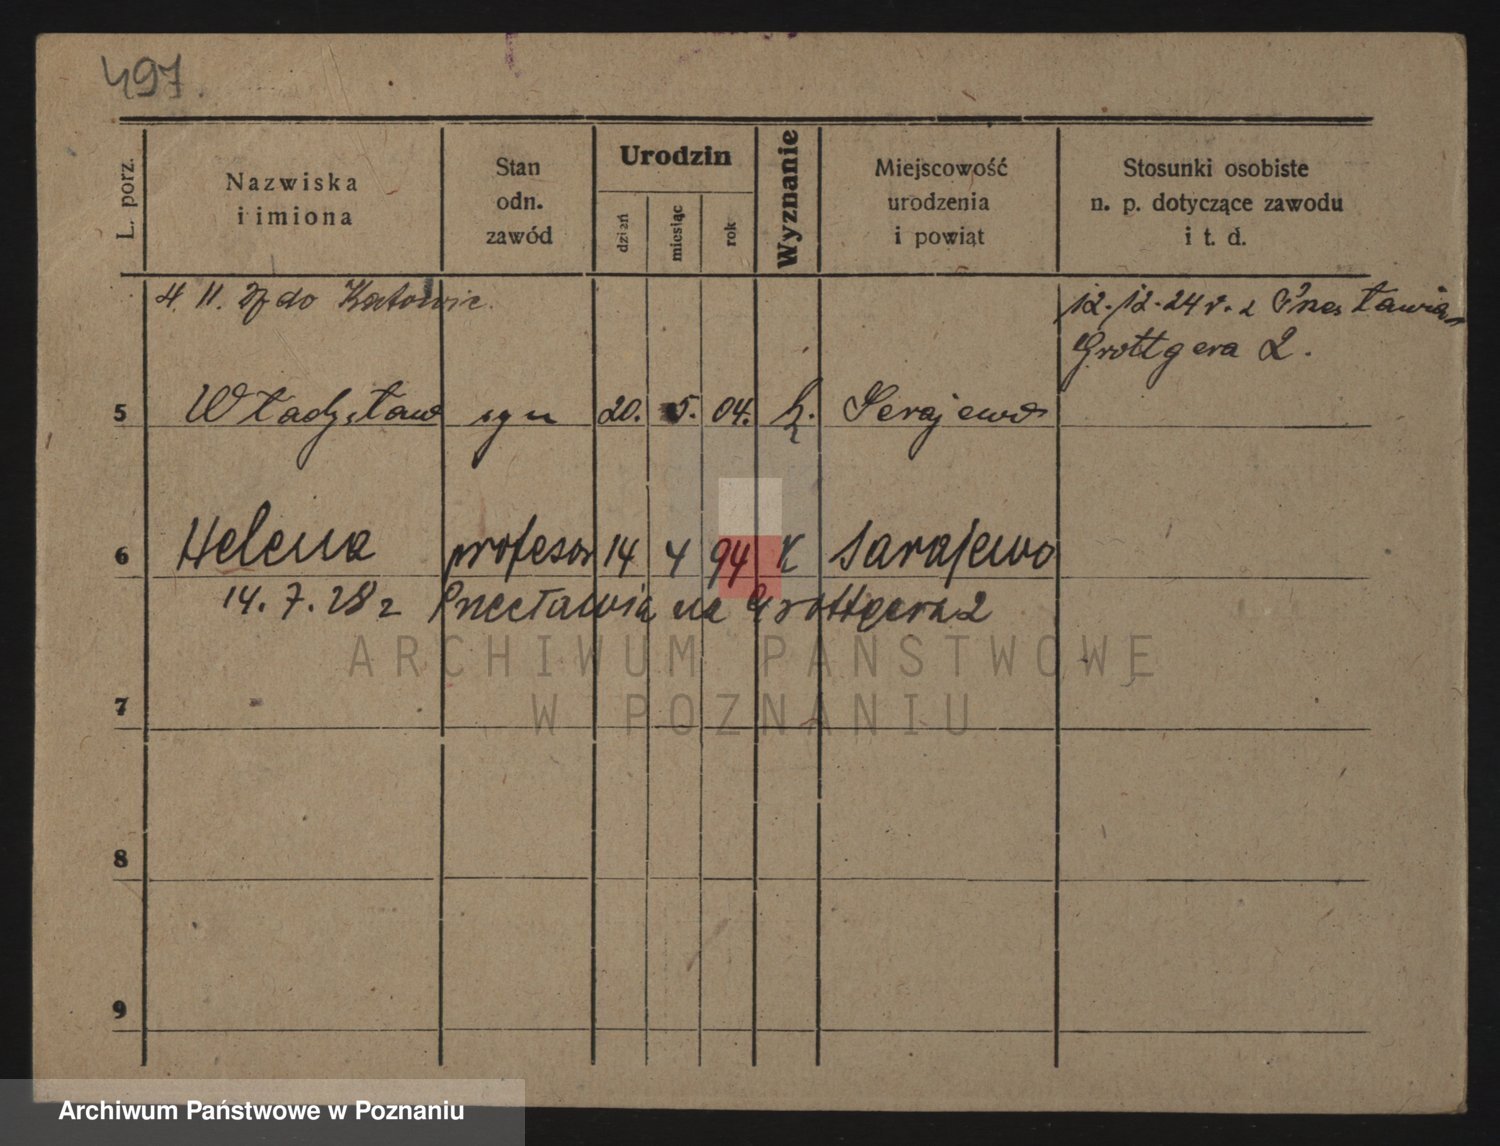 497.
L. porz.
Nazwiska
i imiona
Stan
odn.
zawód
Urodzin
dzień
miesiąc
rok
Wyznanie
Miejscowość
urodzenia
i powiąt
Stosunki osobiste
n. p. dotyczące zawodu
i t. d.
4. 11. do Katowic.
12. 12. 24 r. z
Grottgera 2.
5 Władysław syn 20. 5. 04. k. Serajewo
6 Helena profesor 14 4 94 K Sarajewo
14. 7. 28 z na Grottgera 2
7
8
9
ARCHIWUM PAŃSTWOWE
W POZNANIU
Archiwum Państwowe w Poznaniu